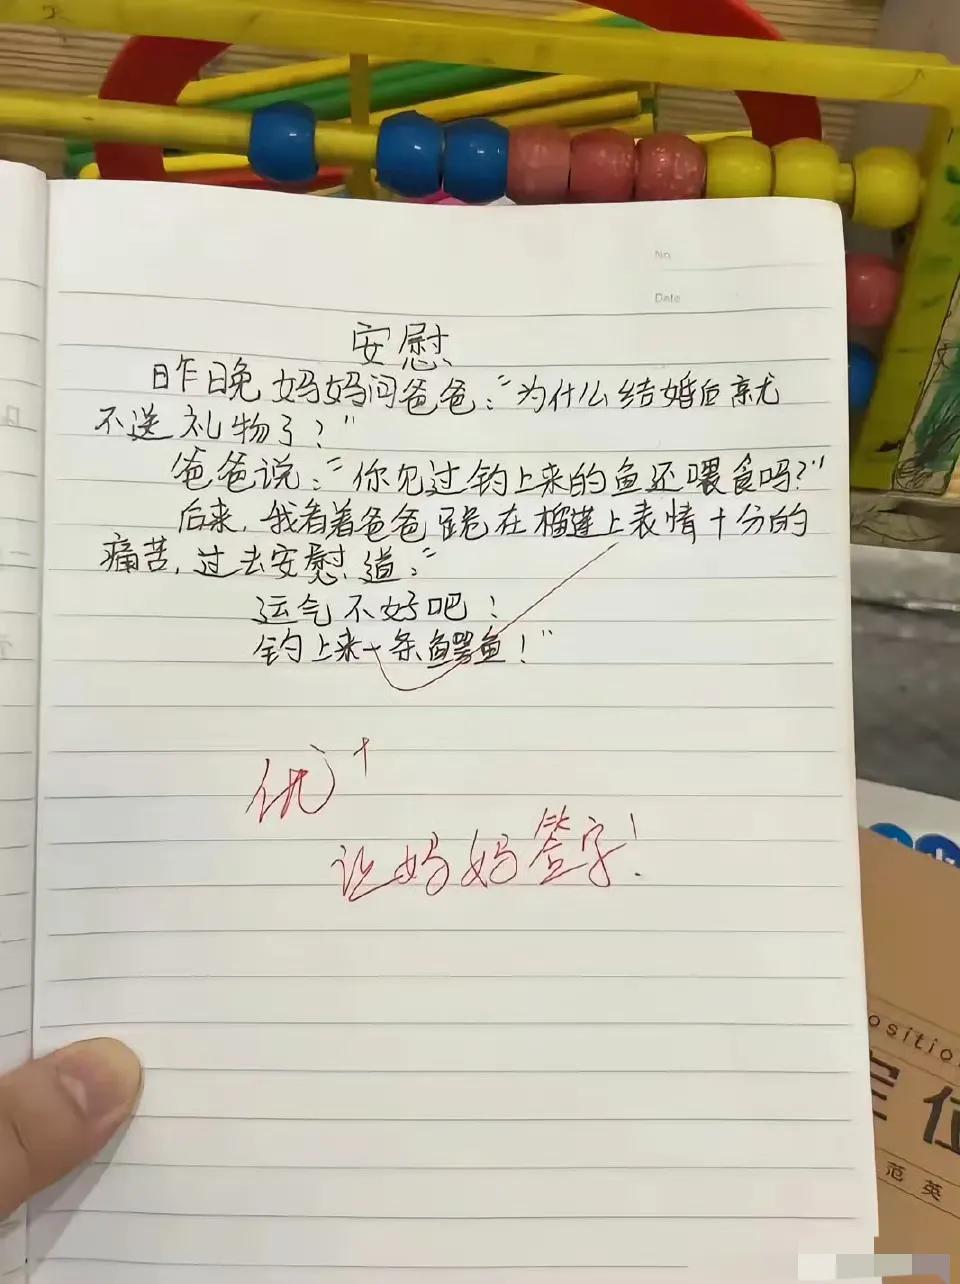 No
Date
安慰
昨晚妈妈问爸爸：“为什么结婚后就
不送礼物了？”
爸爸说：“你见过钓上来的鱼还喂食吗？”
后来，我看着爸爸跪在榴莲上表情十分的
痛苦，过去安慰道：“
运气不好吧！
钓上来一条鳄鱼！”
优+
让妈妈签字！
ositio
定位
范英